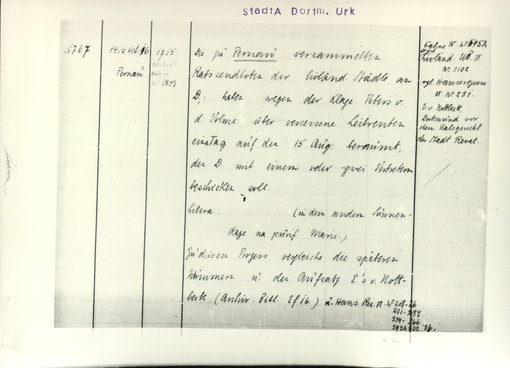 StadtA Dortm. Urk
N. 767
14. Febr. 16
Pernau
1715
Die zu Pernau versammelten
Ratssendboten der livländ. Städte an
D.: haben wegen der Klage Peters v.
d. Volme über versessene Leibrenten
einen Tag auf den 15 Aug. beraumt,
den D. mit einem oder zwei Vertretern
beschicken soll.
litera. (in dem andern Sunnen-
dage na purif. Marie.)
Zu diesem Prozess vergleiche die späteren
Nummern u. den Aufsatz E's v. Nott-
beck (Archiv. Bibl. Ef 16) u. Hans. Rec.
Livland. UB
N. 3102
vgl. Hanserezesse
N. 231.
E. v. Nottbeck
Dortmund vor
dem Ratsgericht
der Stadt Reval.